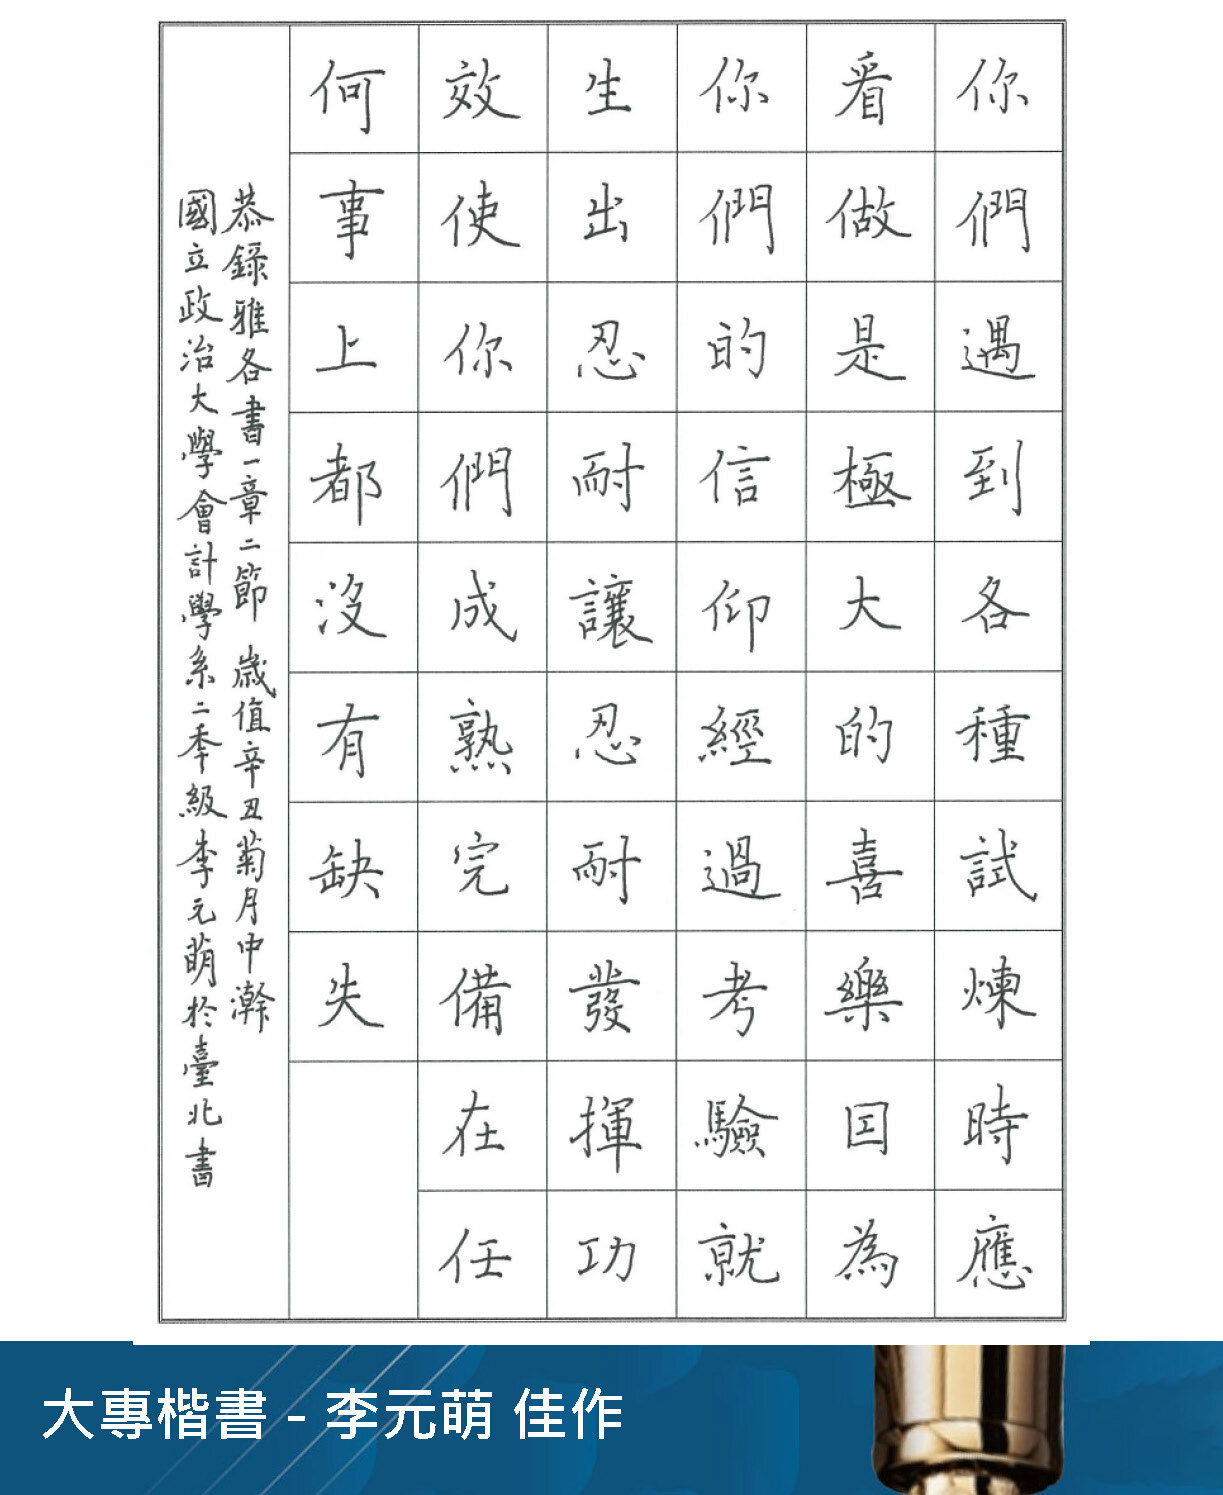 你們遇到各種試煉時應
看做是極大的喜樂因為
你們的信仰經過考驗就
生出忍耐讓忍耐發揮功
效使你們成熟完備在任
何事上都沒有缺失
恭錄雅各書一章二節 歲值辛丑菊月中澣
國立政治大學會計學系二年級李元萌於臺北書
大專楷書 - 李元萌 佳作